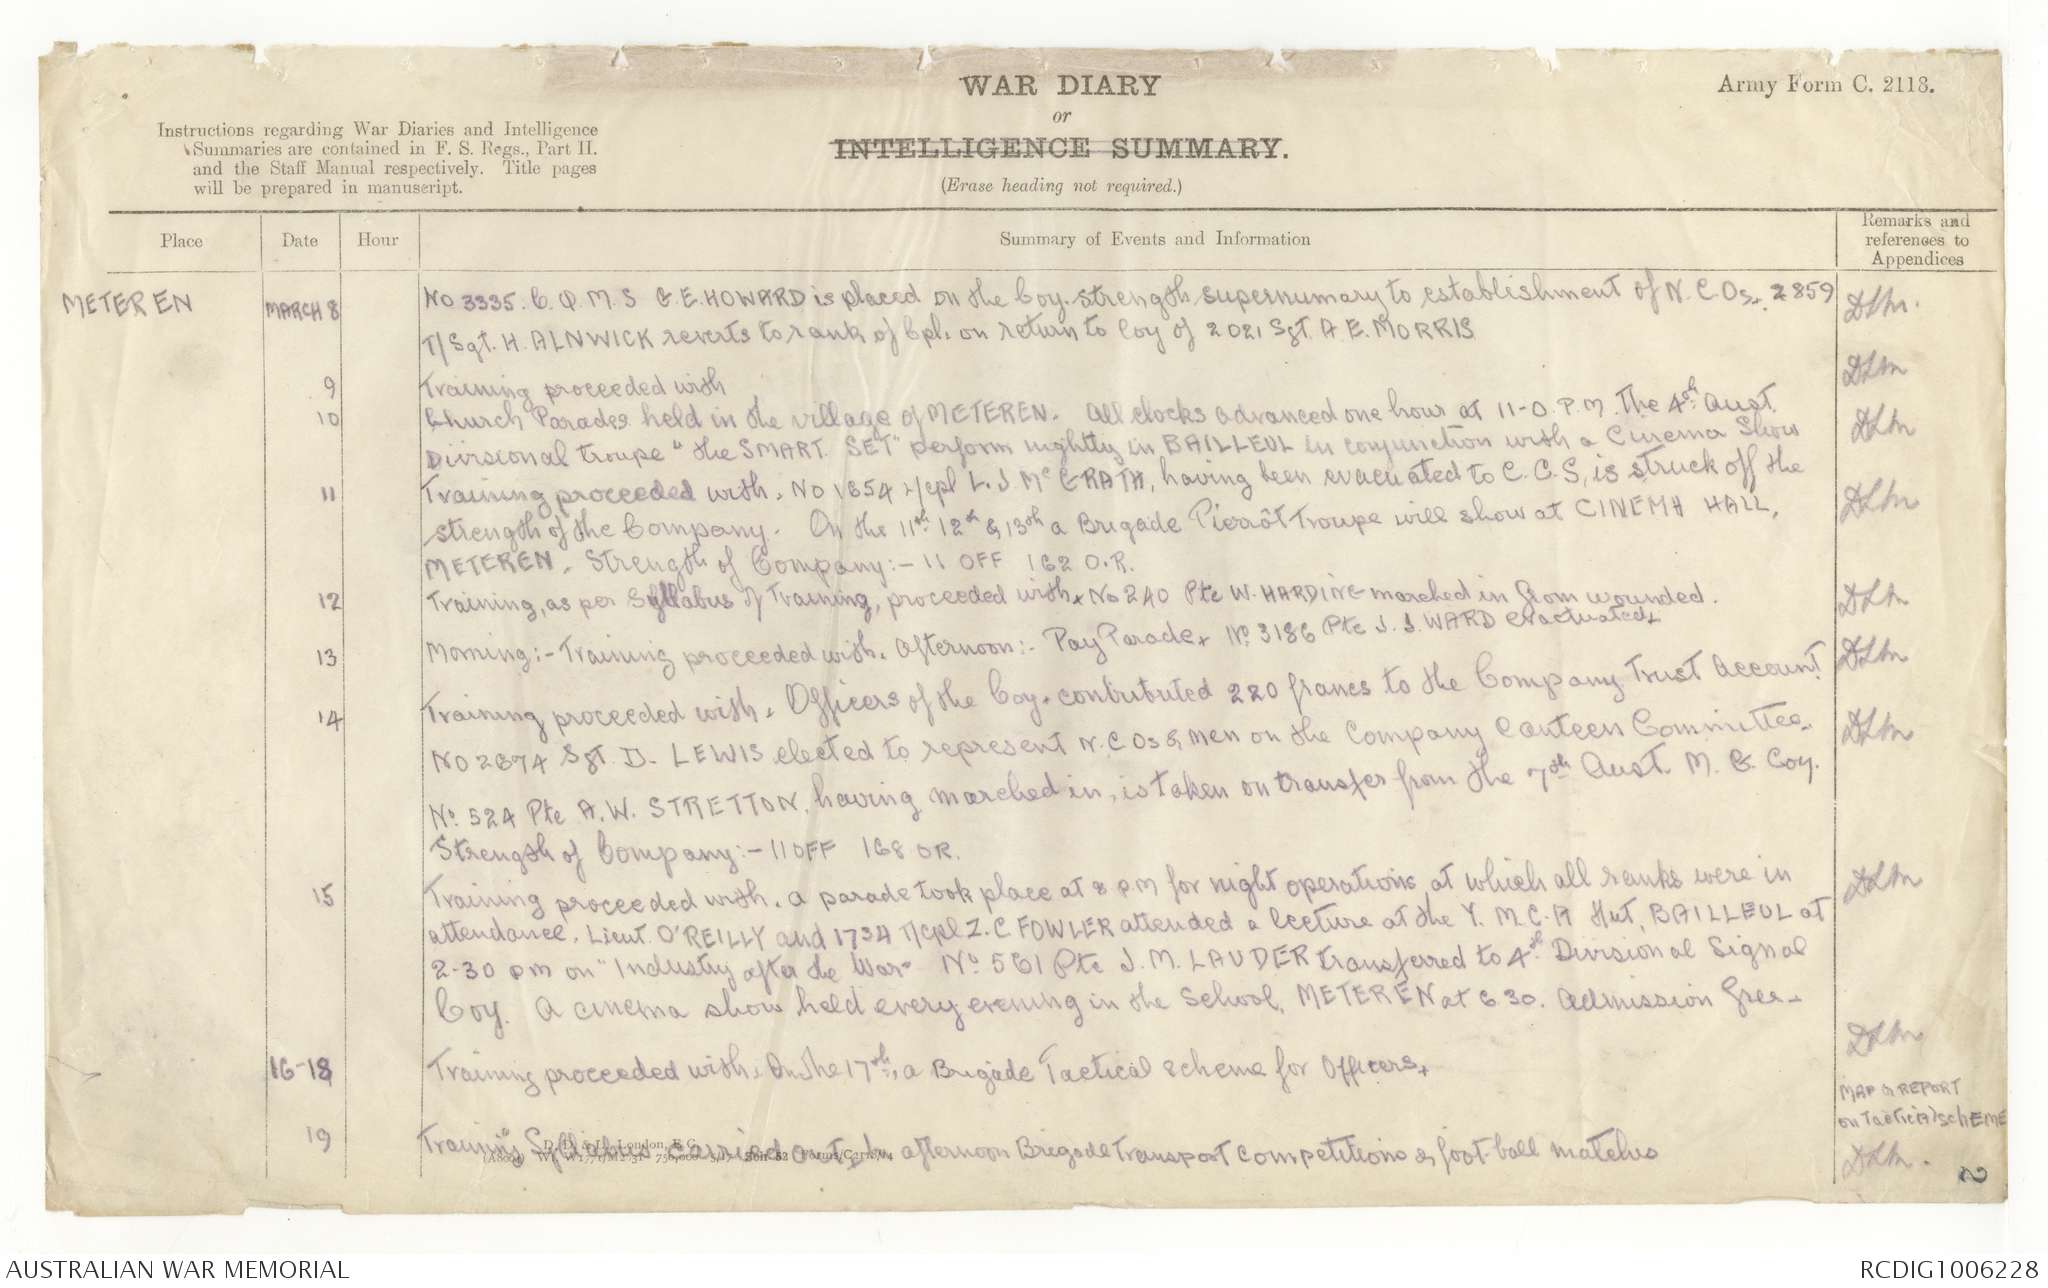 WAR DIARY
or
INTELLIGENCE SUMMARY.
(Erase heading not required.)
Army Form C. 2118.
Instructions regarding War Diaries and Intelligence
Summaries are contained in F. S. Regs., Part II.
and the Staff Manual respectively. Title pages
will be prepared in manuscript.
Place Date Hour Summary of Events and Information Remarks and
references to
Appendices
METEREN MARCH 8 No 3335. C.Q.M.S G.E. HOWARD is placed on the Coy. strength supernumary to establishment of N.C.Os. 2859
T/Sgt. H. ALNWICK reverts to rank of Cpl. on return to Coy of 2021 Sgt. A E. MORRIS
9 Training proceeded with
10 Church Parades held in the village of METEREN. All clocks advanced one hour at 11-0 P.M. The 4th Aust.
Divisional troupe "the SMART SET" perform nightly in BAILLEUL in conjunction with a Cinema Show
11 Training proceeded with. No 1854 L/cpl L.J. McGRATH, having been evacuated to C.C.S, is struck off the
strength of the Company. On the 11th 12th & 13th a Brigade Pierrôt Troupe will show at CINEMA HALL,
METEREN. Strength of Company:- 11 OFF 162 O.R.
12 Training, as per Syllabus of Training, proceeded with. No 240 Pte W. HARDING marched in from wounded.
13 Morning:- Training proceeded with. Afternoon:- Pay Parade. No. 3186 Pte J. J. WARD evacuated.
14 Training proceeded with. Officers of the Coy. contributed 220 francs to the Company Trust Account
No 2874 Sgt. D. LEWIS elected to represent N.C.Os & men on the Company Canteen Committee.
No. 524 Pte A.W. STRETTON, having marched in, is taken on transfer from the 7th Aust. M.G. Coy.
Strength of Company:- 11 OFF 168 OR.
15 Training proceeded with. A parade took place at 8 PM for night operations at which all ranks were in
attendance. Lieut. O'REILLY and 1734 T/cpl Z.C FOWLER attended a lecture at the Y.M.C.A Hut, BAILLEUL at
2-30 PM on "Industry after the War" No. 561 Pte J.M. LAUDER transferred to 4th Divisional Signal
Coy. A cinema show held every evening in the School, METEREN at 6.30. Admission free.
16-18 Training proceeded with. On the 17th, a Brigade Tactical scheme for Officers.
MAP & REPORT
on Tactical SCHEME
19 Training Syllabus carried out. afternoon Brigade Transport competitions & foot-ball matches
D. D. & L., London, E.C.
2
AUSTRALIAN WAR MEMORIAL
RCDIG1006228